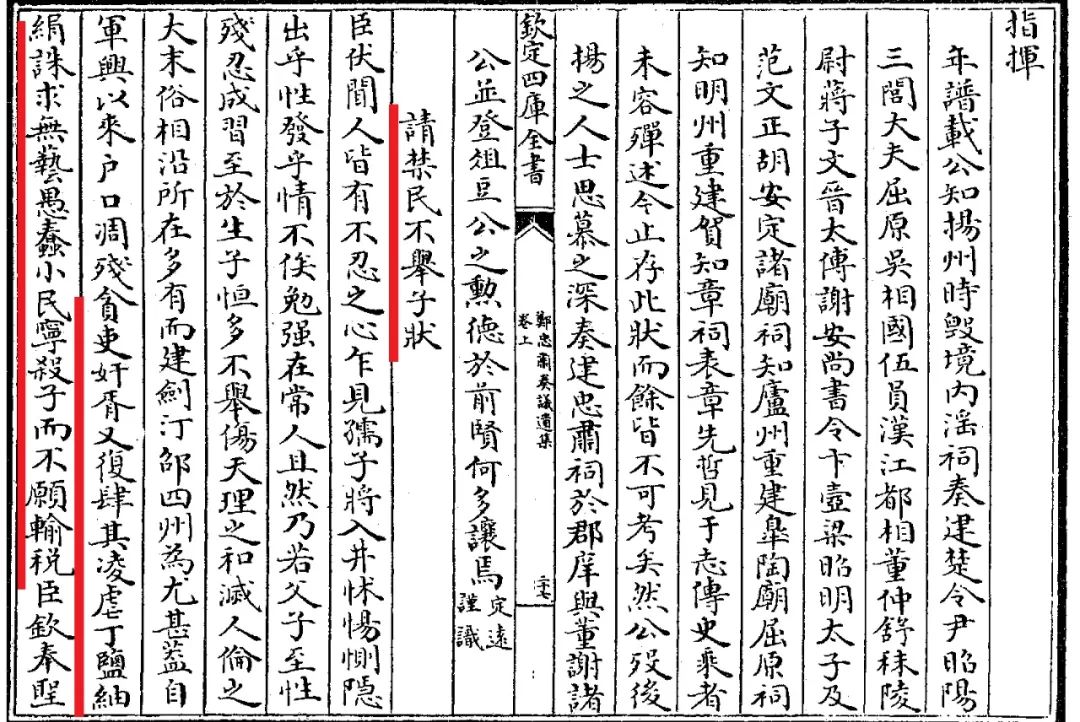 指揮
年譜載公知揚州時毀境内淫祠奏建楚令尹昭陽
三閭大夫屈原吳相國伍員漢江都相董仲舒秣陵
尉蔣子文晉太傅謝安尚書令卞壼梁昭明太子及
范文正胡安定諸廟祠知廬州重建臯陶廟屈原祠
知明州重建賀知章祠表章先哲見于志傳史乘者
未容殫述今止存此狀而餘皆不可考矣然公歿後
揚之人士思慕之深奏建忠肅祠於郡庠與董謝諸
公並登俎豆公之勲德於前賢何多讓焉定遠謹識
欽定四庫全書
鄭忠肅奏議遺集
卷上
二十七
請禁民不舉子狀
臣伏聞人皆有不忍之心乍見孺子將入井怵惕惻隱
出乎性發乎情不俟勉强在常人且然乃若父子至性
殘忍成習至於生子恒多不舉傷天理之和滅人倫之
大末俗相沿所在多有而建劍汀邵四州為尤甚蓋自
軍興以來户口凋殘貪吏奸胥又復肆其凌虐丁鹽紬
絹誅求無藝愚蠢小民寧殺子而不願輸税臣欽奉聖